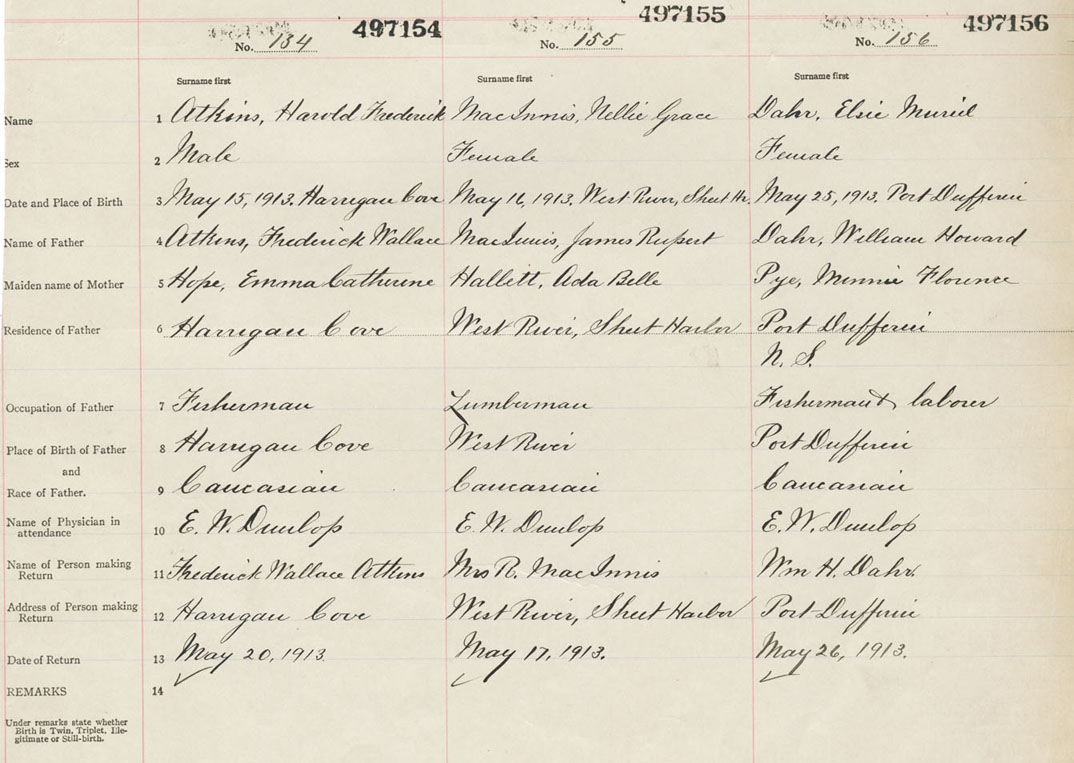 497154 497155 497156
No. 154 No. 155 No. 156
Surname first Surname first Surname first
Name 1 Atkins, Harold Frederick MacInnis, Nellie Grace Dahr, Elsie Muriel
Sex 2 Male Female Female
Date and Place of Birth 3 May 15, 1913. Harrigan Cove May 16, 1913. West River, Sheet Hr. May 25, 1913. Port Dufferin
Name of Father 4 Atkins, Frederick Wallace MacInnis, James Rupert Dahr, William Howard
Maiden name of Mother 5 Hope, Emma Catherine Hallett, Ada Belle Pye, Minnie Florence
Residence of Father 6 Harrigan Cove West River, Sheet Harbor Port Dufferin
N. S.
Occupation of Father 7 Fisherman Lumberman Fisherman & laborer
Place of Birth of Father 8 Harrigan Cove West River Port Dufferin
and
Race of Father. 9 Caucasian Caucasian Caucasian
Name of Physician in
attendance 10 E. W. Dunlop E. W. Dunlop E. W. Dunlop
Name of Person making
Return 11 Frederick Wallace Atkins Mrs R. MacInnis Wm H. Dahr.
Address of Person making
Return 12 Harrigan Cove West River, Sheet Harbor Port Dufferin
Date of Return 13 May 20, 1913. May 17, 1913. May 26, 1913.
REMARKS 14
Under remarks state whether
Birth is Twin, Triplet, Ille-
gitimate or Still-birth.